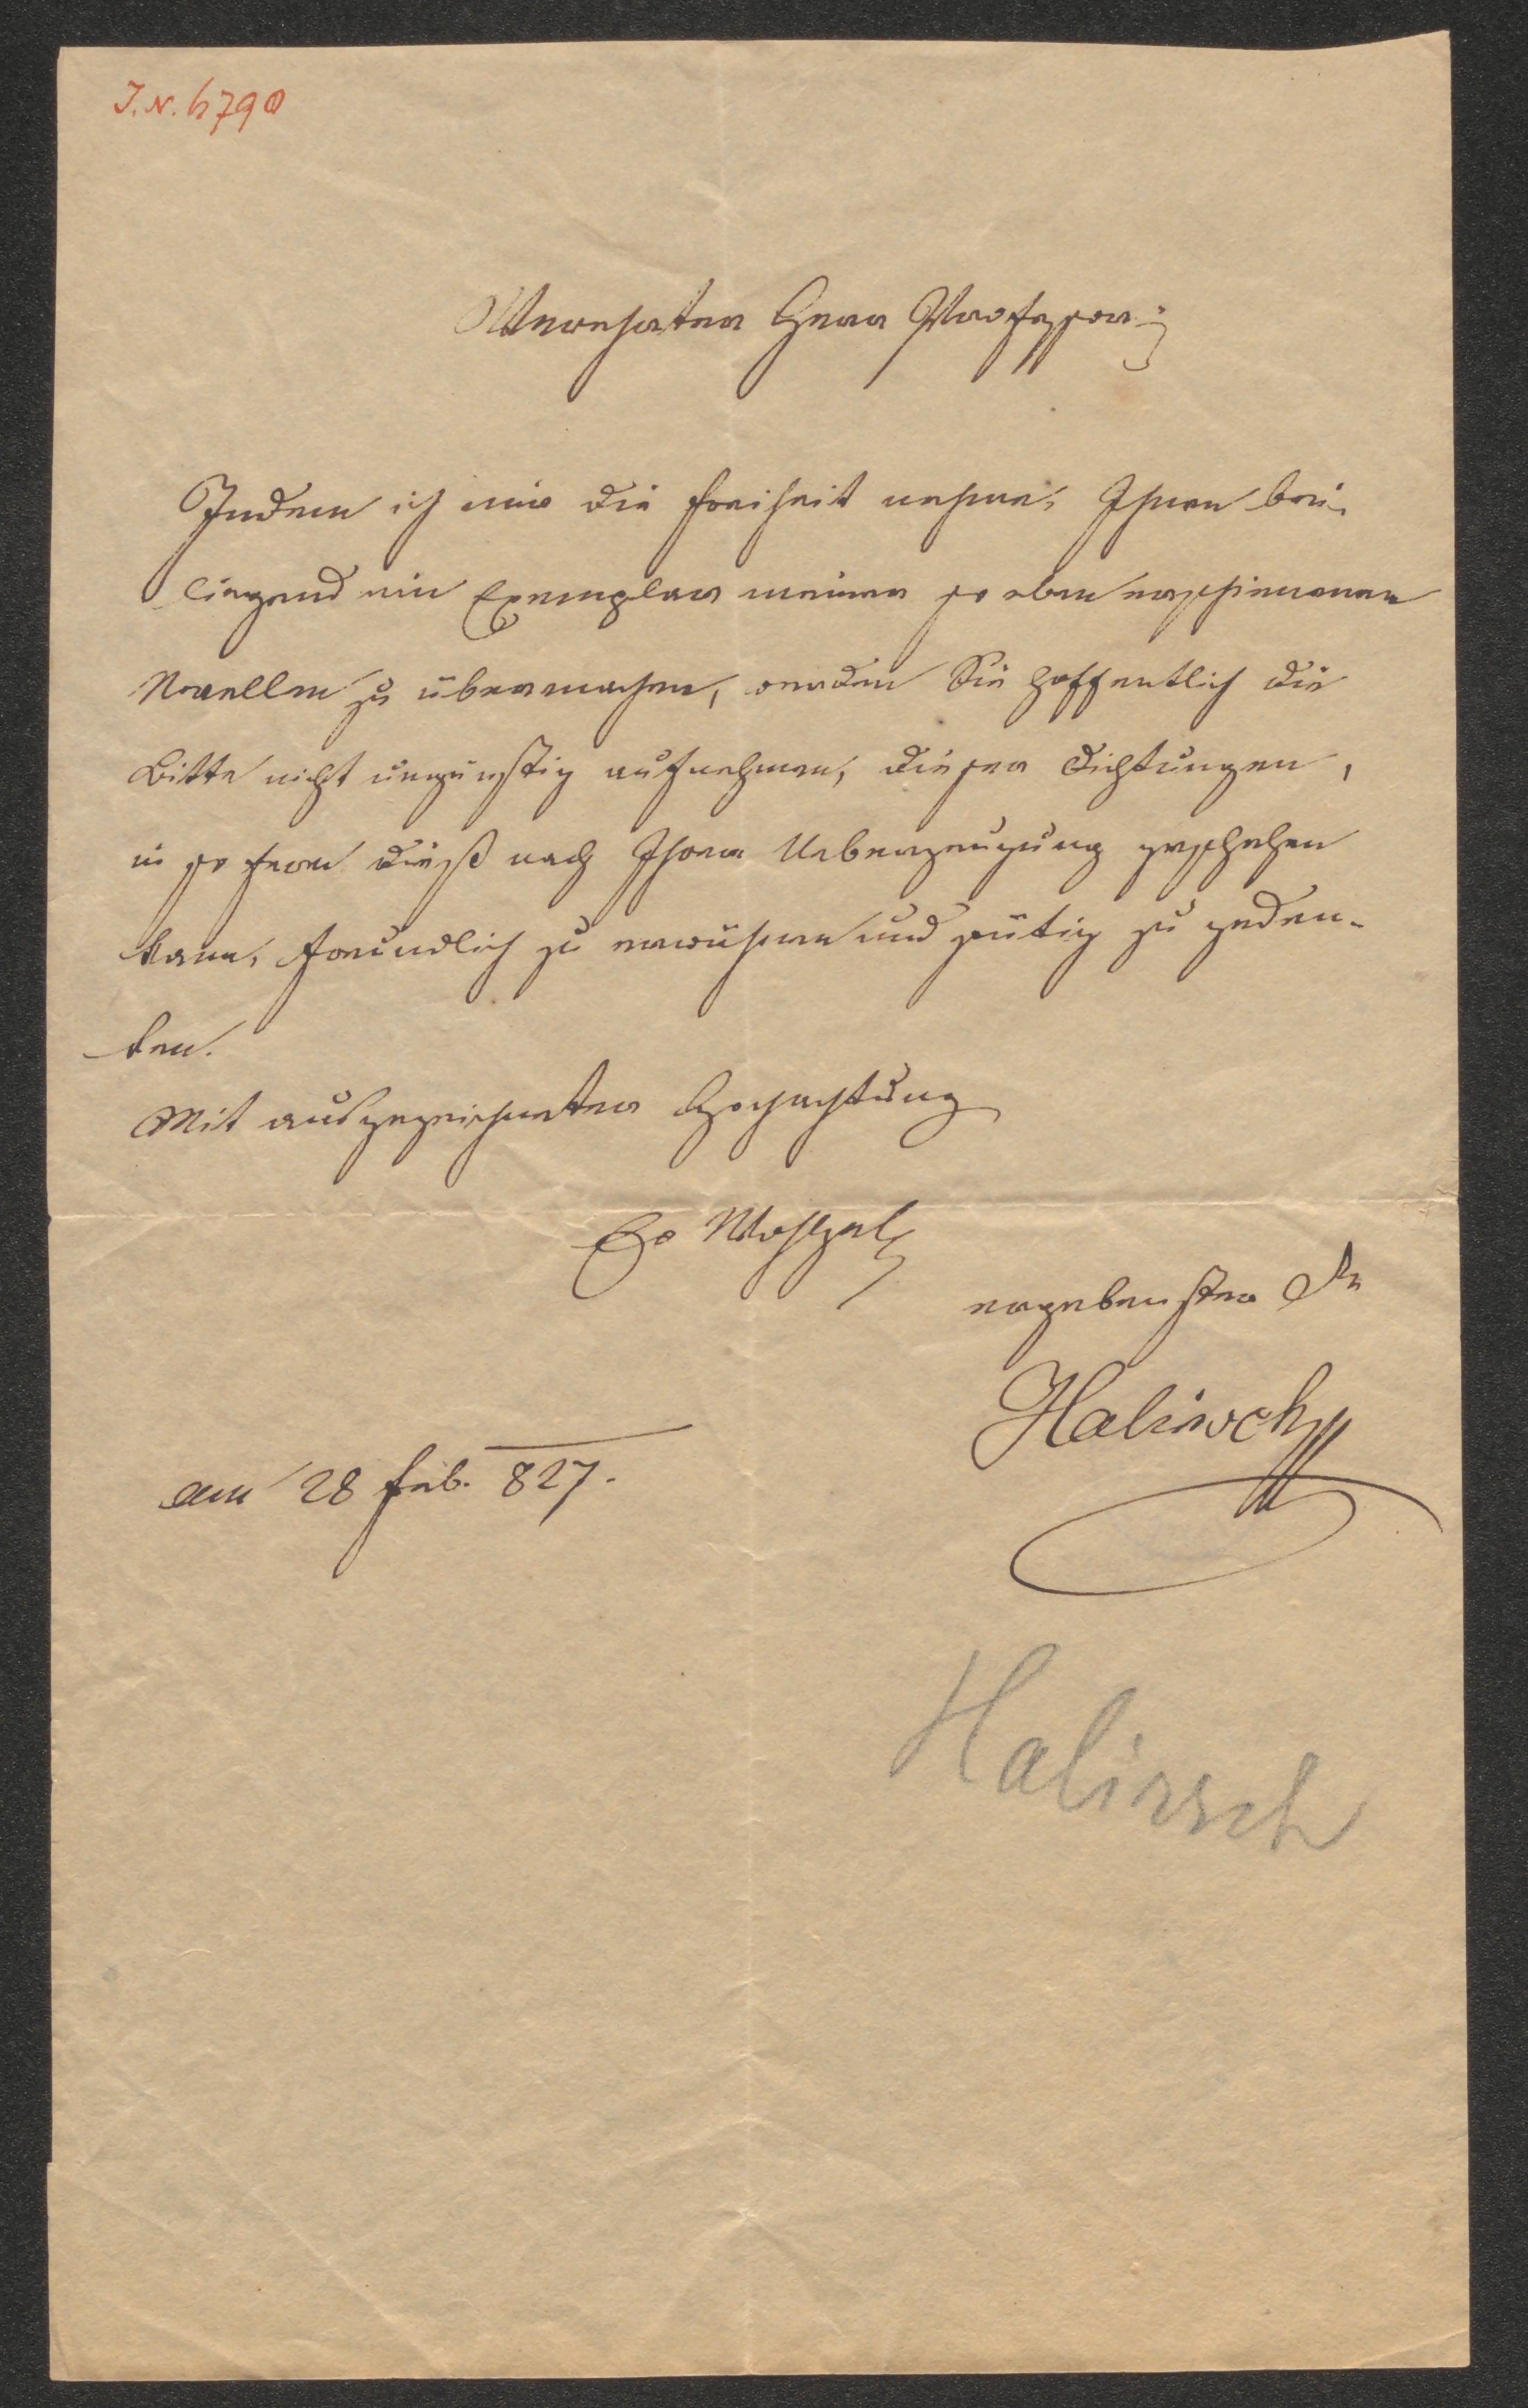 I. N. 6790
Verehrter Herr Professor;
Indem ich mir die Freiheit nehme, Ihnen bei-
liegend ein Exemplar meiner so eben erschienenen
Novellen zu übermachen, werden Sie hoffentlich die
Bitte nicht ungünstig aufnehmen, dieser Dichtungen,
in so fern dieß nach Ihrer Ueberzeugung geschehen
kann, freundlich zu erwähnen und gütig zu geden-
ken.
Mit ausgezeichneter Hochachtung
Er Wohlgeb
ergebenster Dr
Halirsch
am 28 Feb. 827.
Halirsch